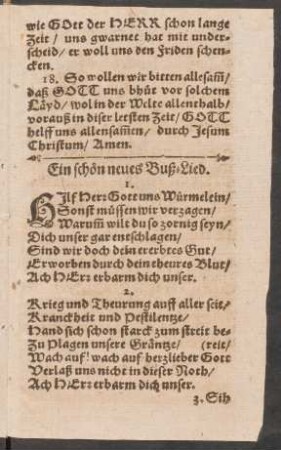 wie GOtt der HERR schon lange
Zeit / uns gwarnet hat mit under-
scheid / er woll uns den Friden schen-
cken.
18. So wollen wir bitten allesam̃ /
daß GOTT uns bhüt vor solchem
Läyd / wol in der Welte allenthalb /
vorauß in diser letsten Zeit / GOTT
helff uns allensam̃en / durch Jesum
Christum / Amen.
Ein schön neues Buß-Lied.
1.
HIlf Herꝛ Gott uns Würmelein /
Sonst müssen wir verzagen /
Warum̃ wilt du so zornig seyn /
Dich unser gar entschlagen /
Sind wir doch dein ererbtes Gut /
Erworben durch dein theures Blut /
Ach HErꝛ erbarm dich unser.
2.
Krieg und Theurung auff aller seit /
Kranckheit und Pestilentze /
Hand sich schon starck zum streit be-
Zu Plagen unsere Gräntze / (reit /
Wach auf! wach auf herzlieber Gott
Verlaß uns nicht in dieser Noth /
Ach HErꝛ erbarm dich unser.
3. Sih